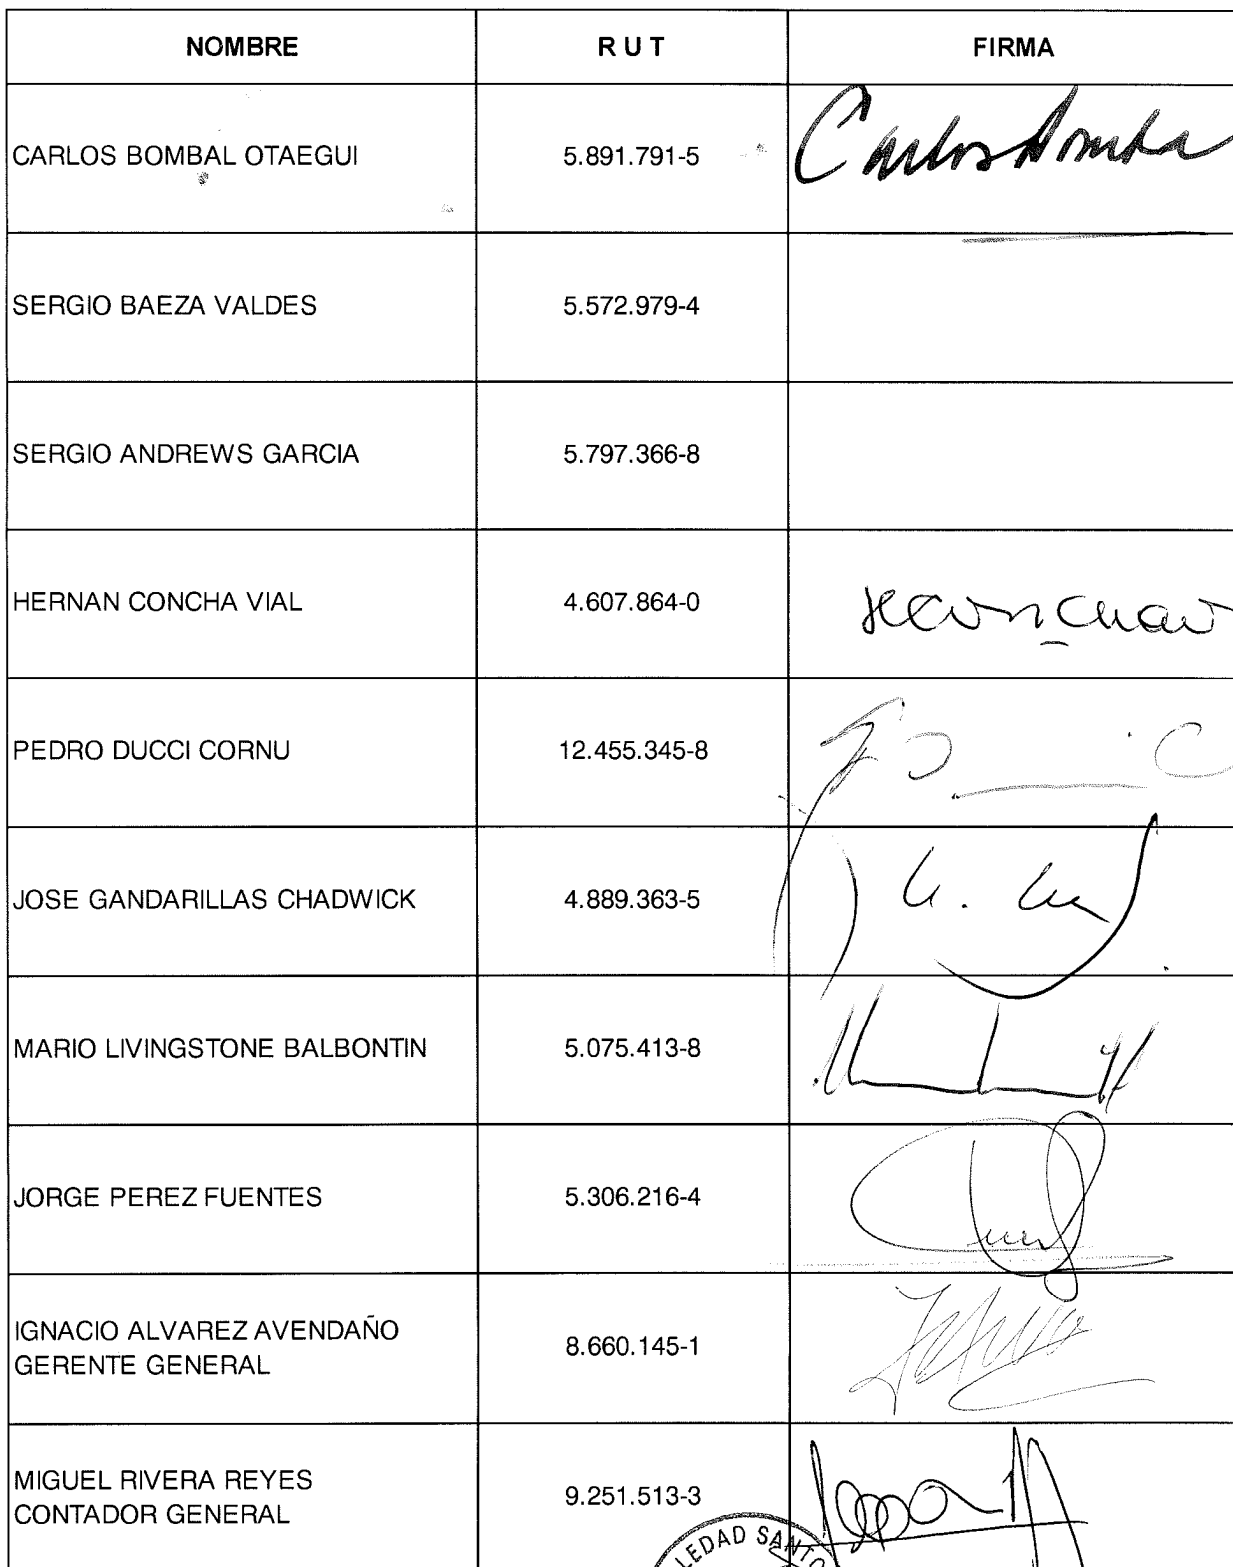 NOMBRE RUT FIRMA
CARLOS BOMBAL OTAEGUI 5.891.791-5 Carlos Bomba
SERGIO BAEZA VALDES 5.572.979-4
SERGIO ANDREWS GARCIA 5.797.366-8
HERNAN CONCHA VIAL 4.607.864-0
PEDRO DUCCI CORNU 12.455.345-8
JOSE GANDARILLAS CHADWICK 4.889.363-5
MARIO LIVINGSTONE BALBONTIN 5.075.413-8
JORGE PEREZ FUENTES 5.306.216-4
IGNACIO ALVAREZ AVENDAÑO
GERENTE GENERAL 8.660.145-1
MIGUEL RIVERA REYES
CONTADOR GENERAL 9.251.513-3
LEDAD SANTO